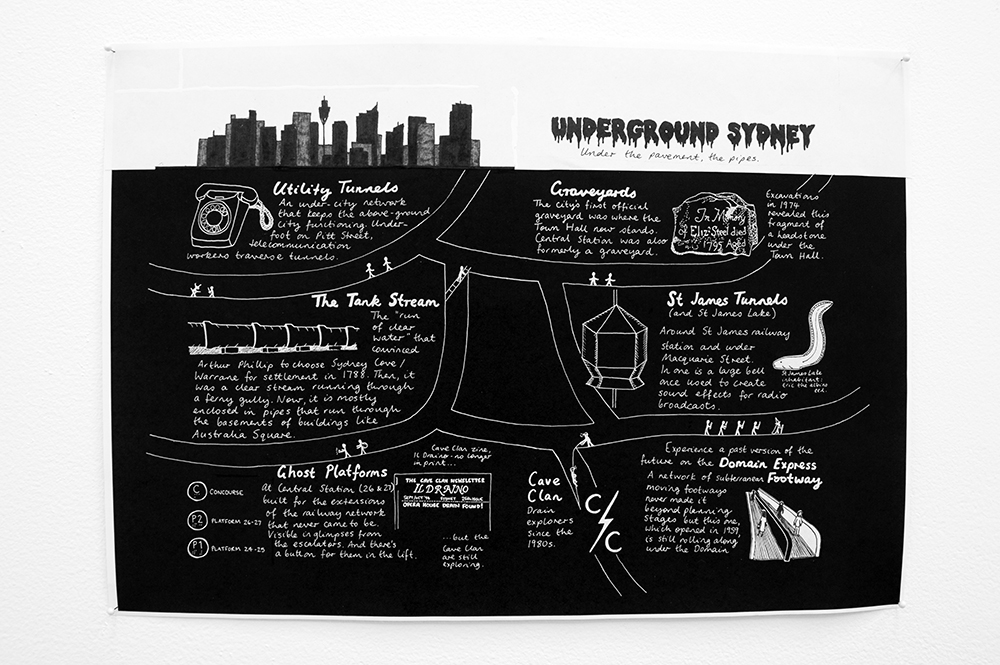 UNDERGROUND SYDNEY
Under the pavement, the pipes.
Utility Tunnels
An under-city network
that keeps the above-ground
city functioning. Under-
foot on Pitt Street,
telecommunication
workers traverse tunnels.
Graveyards
The city's first official
graveyard was where the
Town Hall now stands.
Central Station was also
formerly a graveyard.
In Memory
of Eliz. Steel died
1795 Aged
Excavations
in 1974
revealed this
fragment of
a headstone
under the
Town Hall.
The Tank Stream
The "run
of clear
water" that
convinced
Arthur Phillip to choose Sydney Cove/
Warrane for settlement in 1788. Then, it
was a clear stream running through
a ferny gully. Now, it is mostly
enclosed in pipes that run through
the basements of buildings like
Australia Square.
St James Tunnels
(and St James Lake)
Around St James railway
station and under
Macquarie Street.
In one is a large bell
once used to create
sound effects for radio
broadcasts.
St James Lake
inhabitant:
Eric the albino
eel.
Ghost Platforms
At Central Station (26 & 27)
built for the extensions
of the railway network
that never came to be.
Visible in glimpses from
the escalators. And there's
a button for them in the lift.
C CONCOURSE
P2 PLATFORM 26-27
P1 PLATFORM 24-25
Cave Clan zine,
Il Draino - no longer
in print...
THE CAVE CLAN NEWSLETTER
IL DRAINO
SYDNEY
OPERA HOUSE DRAIN FOUND!
...but the
Cave Clan
are still
exploring.
Cave
Clan
Drain
explorers
since the
1980s.
C/C
Experience a past version of the
future on the Domain Express
Footway
A network of subterranean
moving footways
never made it
beyond planning
stages but this one,
which opened in 1959,
is still rolling along
under the Domain